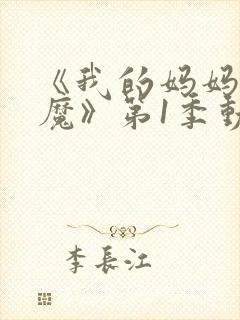 《我的妈妈
魔》第1季動
李長江